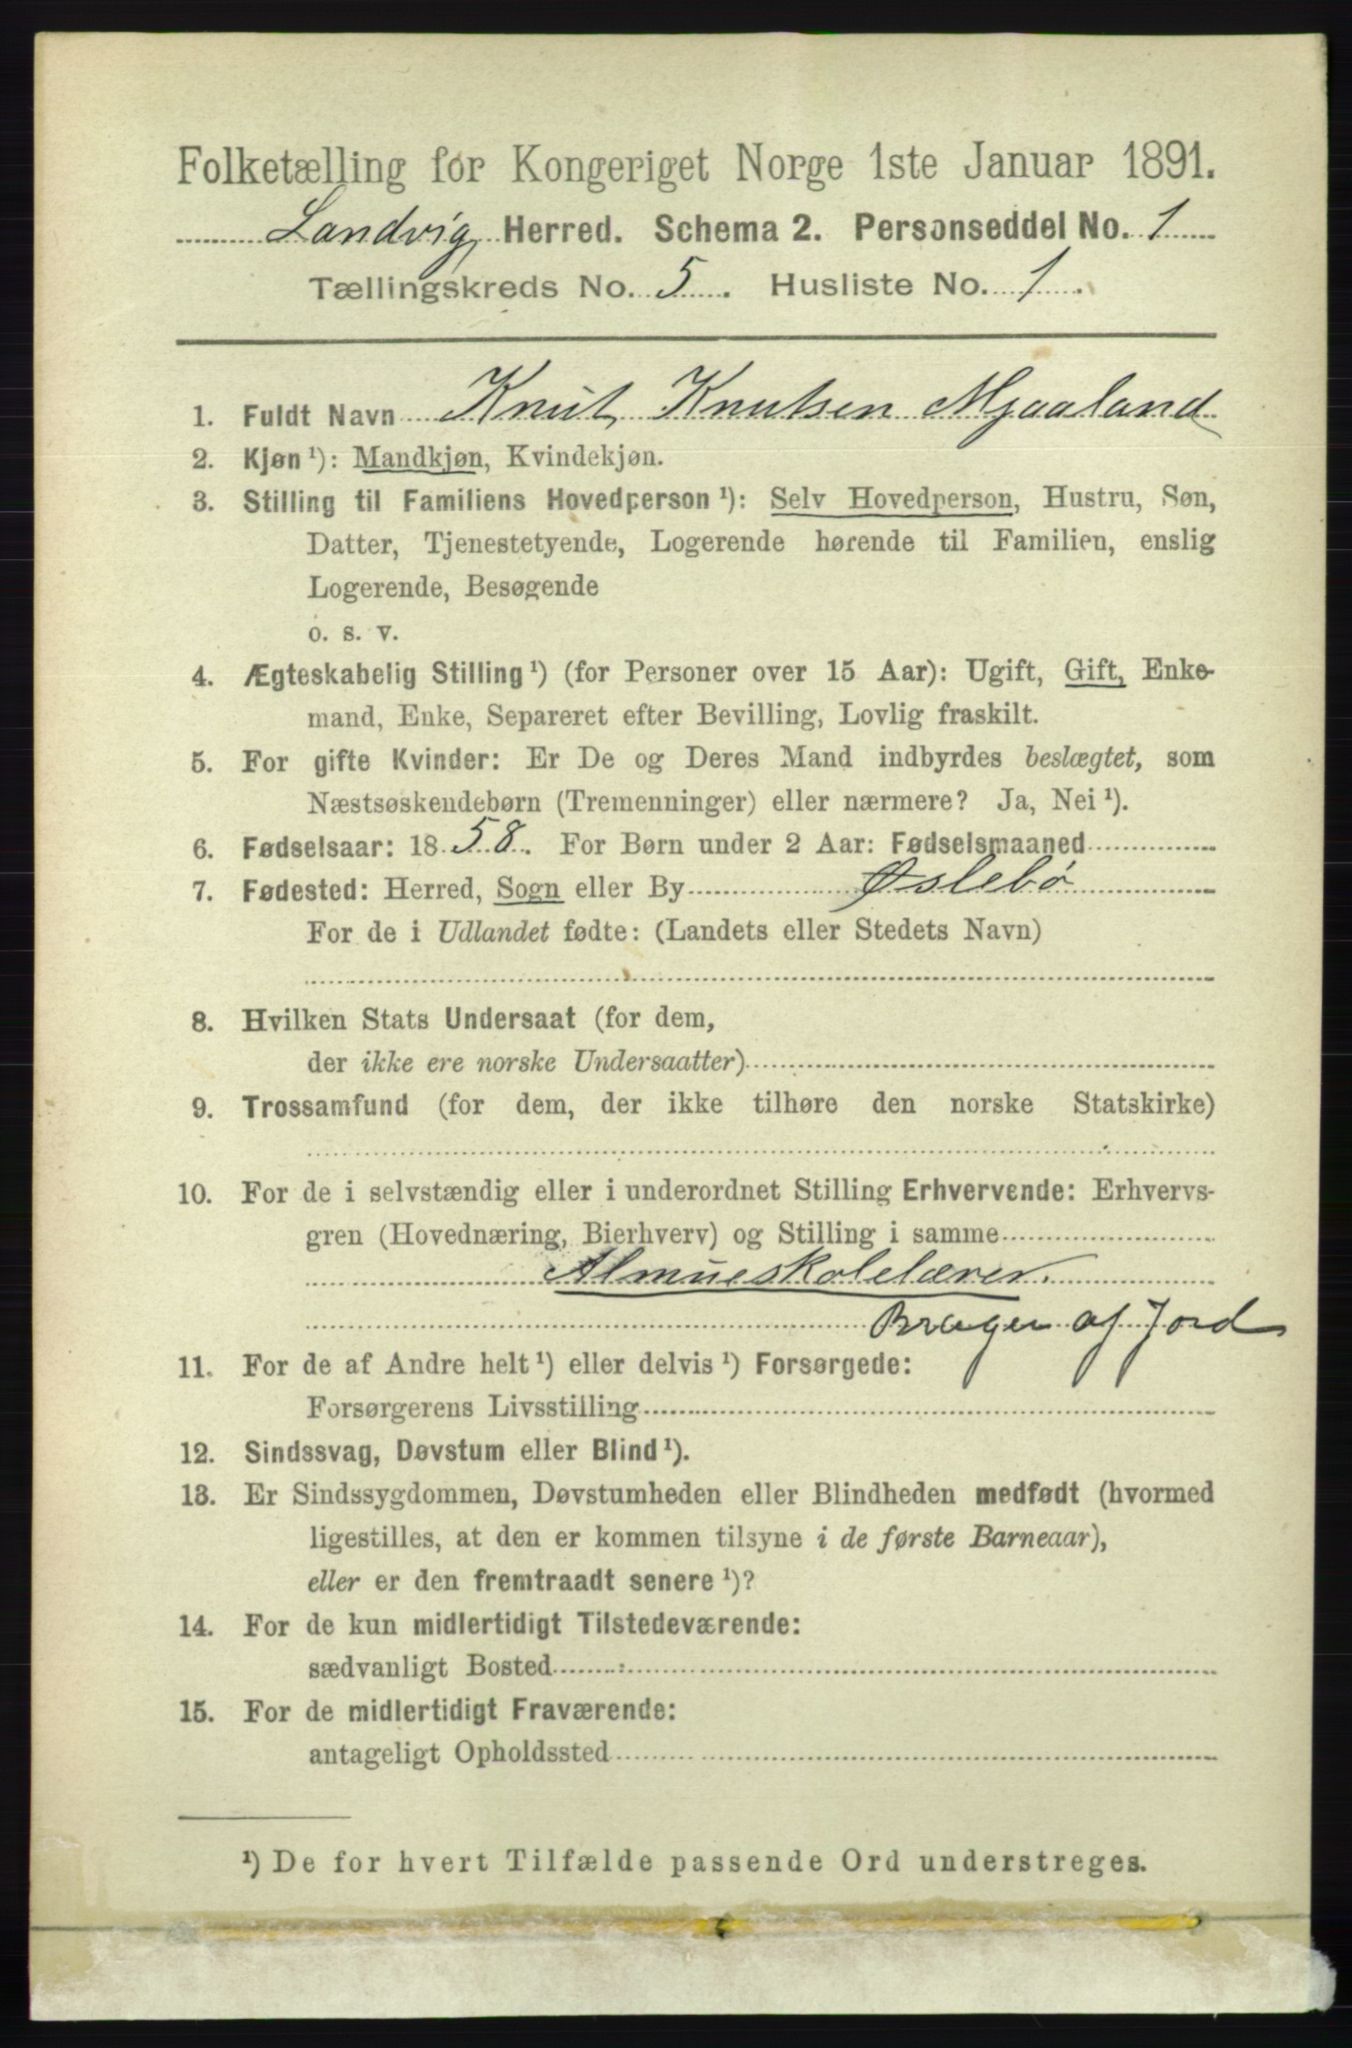 Folketælling for Kongeriget Norge 1ste Januar 1891.
Landvig Herred. Schema 2. Personseddel No. 1
Tællingskreds No. 5. Husliste No. 1.
1. Fuldt Navn Knut Knutsen Mjaaland
2. Kjøn ¹): Mandkjøn, Kvindekjøn.
3. Stilling til Familiens Hovedperson ¹): Selv Hovedperson, Hustru, Søn,
Datter, Tjenestetyende, Logerende hørende til Familien, enslig
Logerende, Besøgende
o. s. v.
4. Ægteskabelig Stilling ¹) (for Personer over 15 Aar): Ugift, Gift, Enke-
mand, Enke, Separeret efter Bevilling, Lovlig fraskilt.
5. For gifte Kvinder: Er De og Deres Mand indbyrdes beslægtet, som
Næstsøskendebørn (Tremenninger) eller nærmere? Ja, Nei ¹).
6. Fødselsaar: 1858. For Børn under 2 Aar: Fødselsmaaned
7. Fødested: Herred, Sogn eller By Øslebø
For de i Udlandet fødte: (Landets eller Stedets Navn)
8. Hvilken Stats Undersaat (for dem,
der ikke ere norske Undersaatter)
9. Trossamfund (for dem, der ikke tilhøre den norske Statskirke)
10. For de i selvstændig eller i underordnet Stilling Erhvervende: Erhvervs-
gren (Hovednæring, Bierhverv) og Stilling i samme
Almueskolelærer.
Bruger af Jord
11. For de af Andre helt ¹) eller delvis ¹) Forsørgede:
Forsørgerens Livsstilling
12. Sindssvag, Døvstum eller Blind ¹).
13. Er Sindssygdommen, Døvstumheden eller Blindheden medfødt (hvormed
ligestilles, at den er kommen tilsyne i de første Barneaar),
eller er den fremtraadt senere ¹)?
14. For de kun midlertidigt Tilstedeværende:
sædvanligt Bosted
15. For de midlertidigt Fraværende:
antageligt Opholdssted
¹) De for hvert Tilfælde passende Ord understreges.